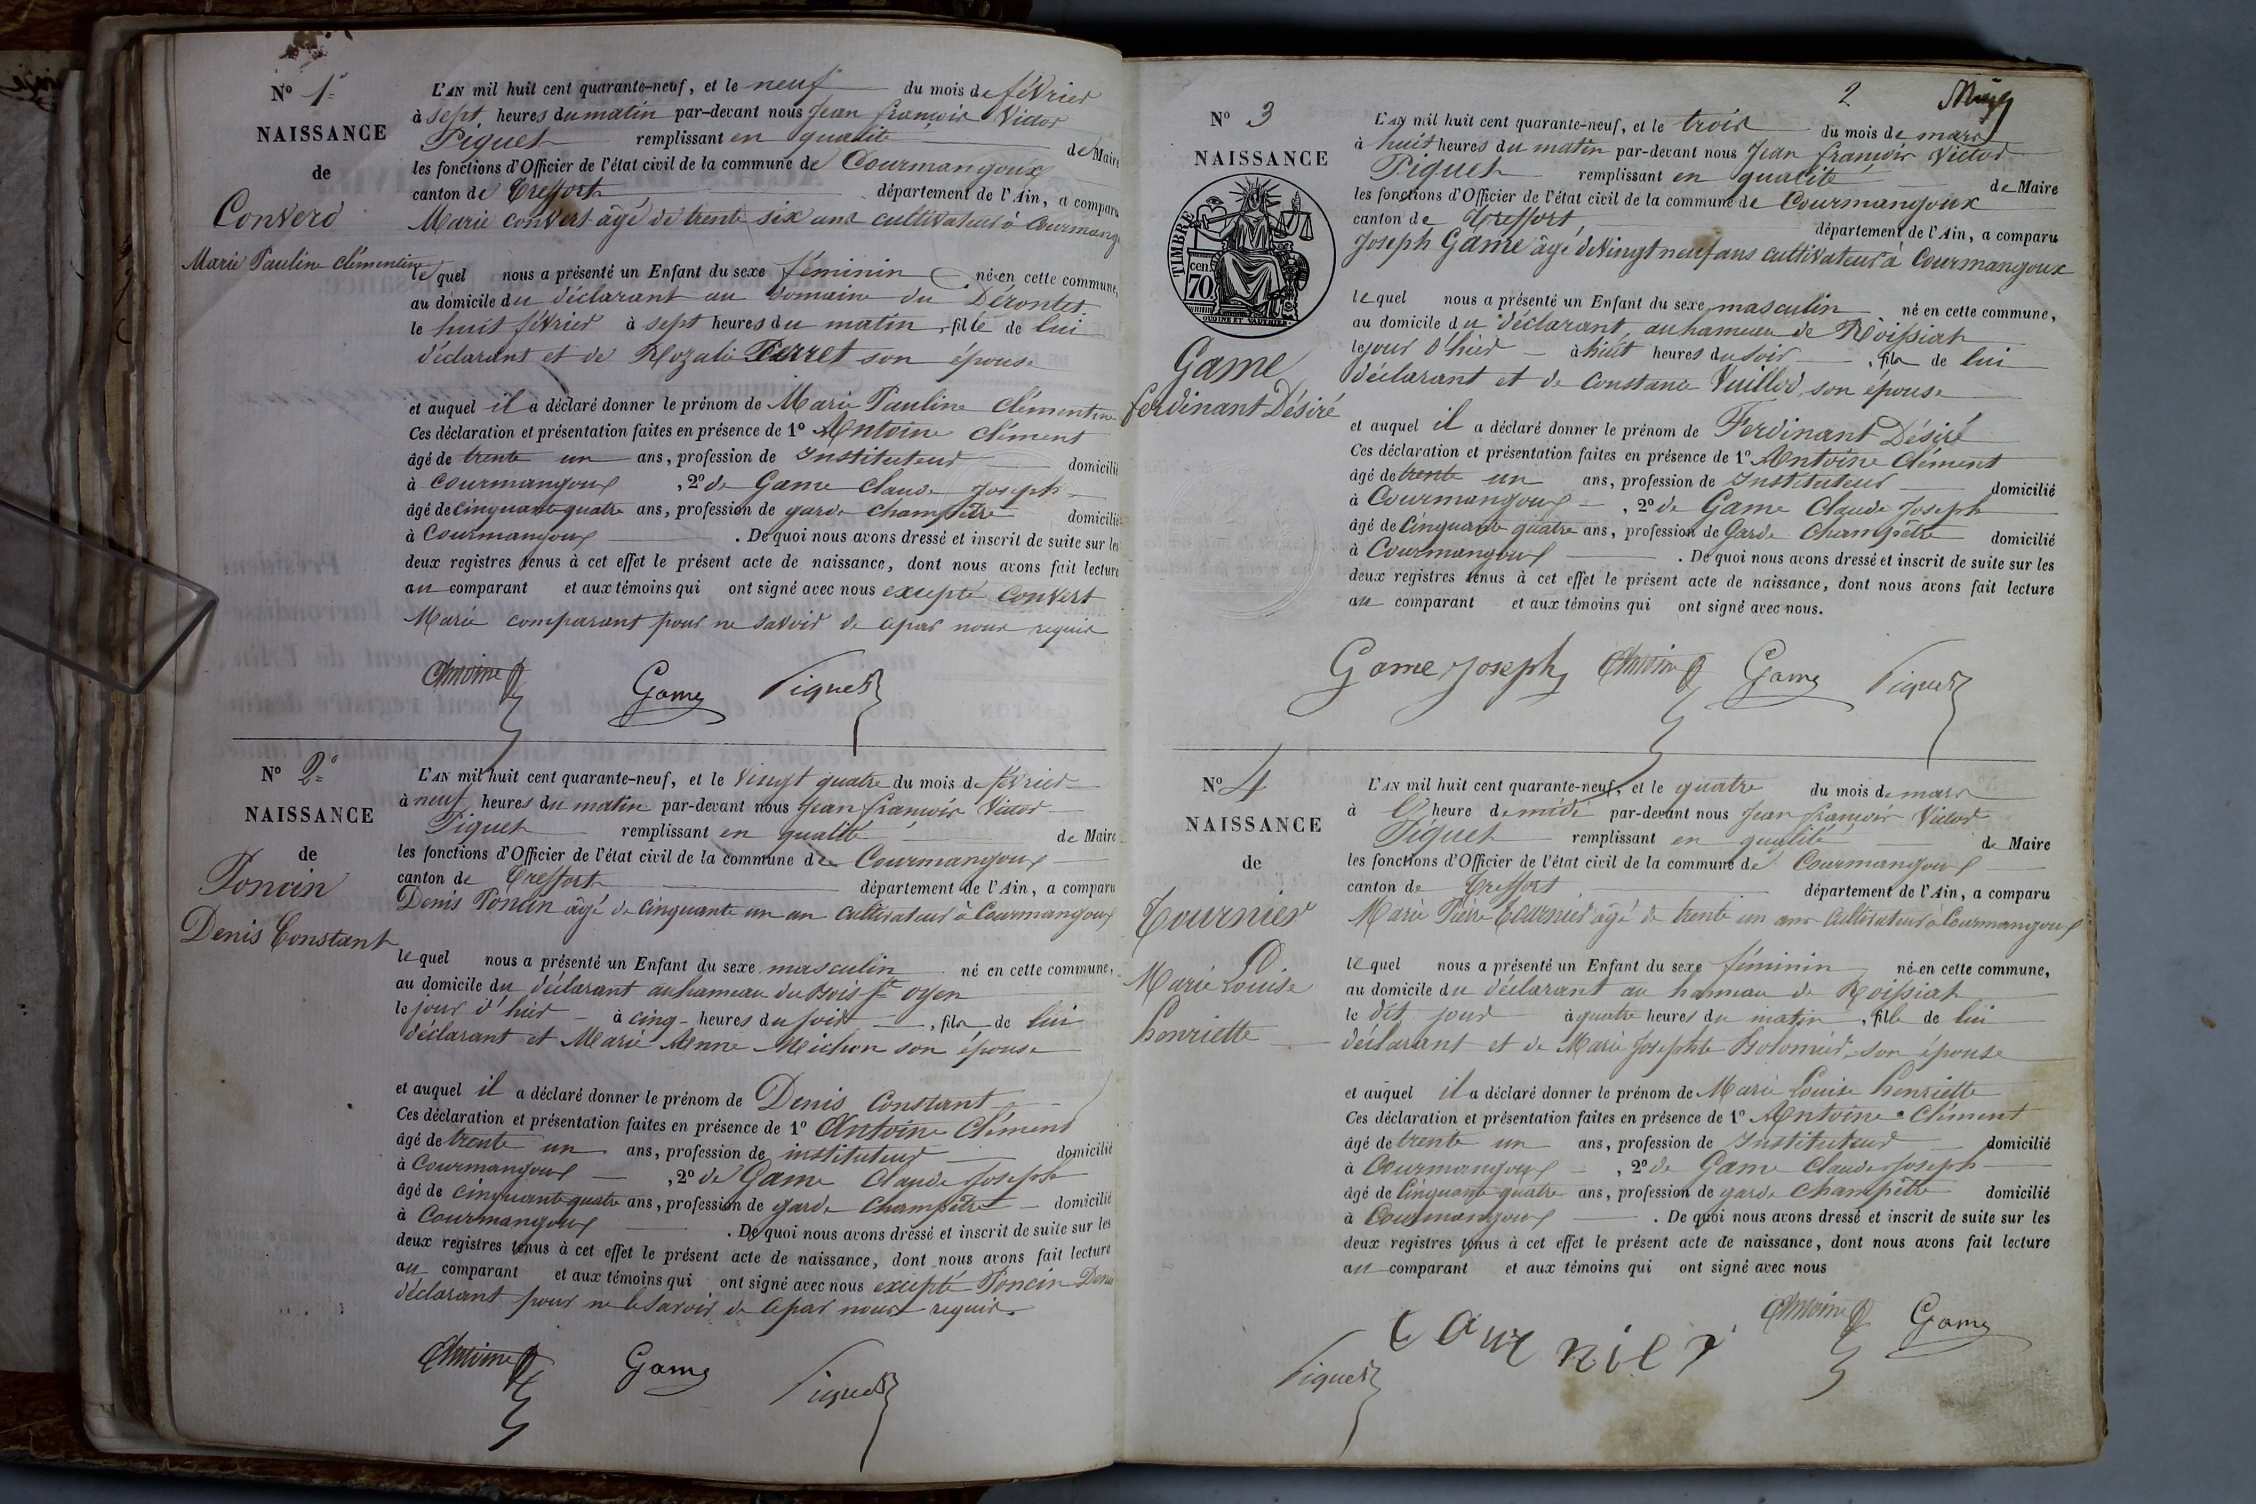 Nº 1=
NAISSANCE
de
Converd
Marie Pauline clémentine
L'AN mil huit cent quarante-neuf, et le neuf du mois de février
à sept heures du matin par-devant nous Jean françois Victor
Piquet remplissant en qualité de Maire
les fonctions d'Officier de l'état civil de la commune de Courmangoux
canton de Treffort département de l'Ain, a comparu
Marie Convert âgé de trente six ans cultivateur à Courmang
lequel nous a présenté un Enfant du sexe féminin né en cette commune,
au domicile du déclarant au Domaine du Dérontet
le huit février à sept heures du matin, fille de lui
déclarant et de Rozalie Perret son épouse
et auquel il a déclaré donner le prénom de Marie Pauline clémentine
Ces déclaration et présentation faites en présence de 1º Antoine clément
âgé de trente un ans, profession de Instituteur domicilié
à Courmangoux, 2º de Game Claude Joseph
âgé de cinquante quatre ans, profession de garde champêtre domicilié
à Courmangoux. De quoi nous avons dressé et inscrit de suite sur les
deux registres tenus à cet effet le présent acte de naissance, dont nous avons fait lecture
au comparant et aux témoins qui ont signé avec nous excepté Convert
Marie comparant pour ne savoir de cepar nous requis
Antoine Game Piquet
Nº 2=
NAISSANCE
de
Poncin
Denis Constant
L'AN mil huit cent quarante-neuf, et le vingt quatre du mois de février
à neuf heures du matin par-devant nous Jean françois Victor
Piquet remplissant en qualité de Maire
les fonctions d'Officier de l'état civil de la commune de Courmangoux
canton de Treffort département de l'Ain, a comparu
Denis Poncin âgé de cinquante un an cultivateur à Courmangoux
lequel nous a présenté un Enfant du sexe masculin né en cette commune,
au domicile du déclarant au hameau du Bois St oyen
le jour d'hier à cinq heures du soir, fils de lui
déclarant et Marie Anne Michon son épouse
et auquel il a déclaré donner le prénom de Denis Constant
Ces déclaration et présentation faites en présence de 1º Antoine Clément
âgé de trente un ans, profession de instituteur domicilié
à Courmangoux, 2º de Game Claude Joseph
âgé de cinquante quatre ans, profession de garde champêtre domicilié
à Courmangoux. De quoi nous avons dressé et inscrit de suite sur les
deux registres tenus à cet effet le présent acte de naissance, dont nous avons fait lecture
au comparant et aux témoins qui ont signé avec nous excepté Poncin Denis
déclarant pour ne le savoir de cepar nous requis.
Antoine Game Piquet
2
Nº 3
NAISSANCE
TIMBRE
70 cen
OUDINÉ ET VAUTHIER.
Game
ferdinant Désiré
L'AN mil huit cent quarante-neuf, et le trois du mois de mars
à huit heures du matin par-devant nous Jean françois Victor
Piquet remplissant en qualité de Maire
les fonctions d'Officier de l'état civil de la commune de Courmangoux
canton de Treffort département de l'Ain, a comparu
Joseph Game âgé de vingt neuf ans cultivateur à Courmangoux
lequel nous a présenté un Enfant du sexe masculin né en cette commune,
au domicile du déclarant, au hameau de Roissiat
le jour d'hier à huit heures du soir, fils de lui
déclarant et de Constance Vuillod son épouse
et auquel il a déclaré donner le prénom de Ferdinant Désiré
Ces déclaration et présentation faites en présence de 1º Antoine Clément
âgé de trente un ans, profession de Instituteur domicilié
à Courmangoux, 2º de Game Claude Joseph
âgé de cinquante quatre ans, profession de Garde Champêtre domicilié
à Courmangoux. De quoi nous avons dressé et inscrit de suite sur les
deux registres tenus à cet effet le présent acte de naissance, dont nous avons fait lecture
au comparant et aux témoins qui ont signé avec nous.
Game Joseph Antoine Game Piquet
Nº 4
NAISSANCE
de
Tournier
Marie Louise
henriette
L'AN mil huit cent quarante-neuf, et le quatre du mois de mars
à l' heure de midi par-devant nous Jean françois Victor
Piquet remplissant en qualité de Maire
les fonctions d'Officier de l'état civil de la commune de Courmangoux
canton de Treffort département de l'Ain, a comparu
Marie Pierre Tournier âgé de trente un ans Cultivateur à Courmangoux
lequel nous a présenté un Enfant du sexe féminin né en cette commune,
au domicile du déclarant au hameau de Roissiat
le dit jour à quatre heures du matin, fille de lui
déclarant et de Marie Josephte Bolomier son épouse
et auquel il a déclaré donner le prénom de Marie Louise henriette
Ces déclaration et présentation faites en présence de 1º Antoine Clément
âgé de trente un ans, profession de Instituteur domicilié
à Courmangoux, 2º de Game Claude Joseph
âgé de Cinquante quatre ans, profession de garde champêtre domicilié
à Courmangoux. De quoi nous avons dressé et inscrit de suite sur les
deux registres tenus à cet effet le présent acte de naissance, dont nous avons fait lecture
au comparant et aux témoins qui ont signé avec nous
Piquet tournier Antoine Game